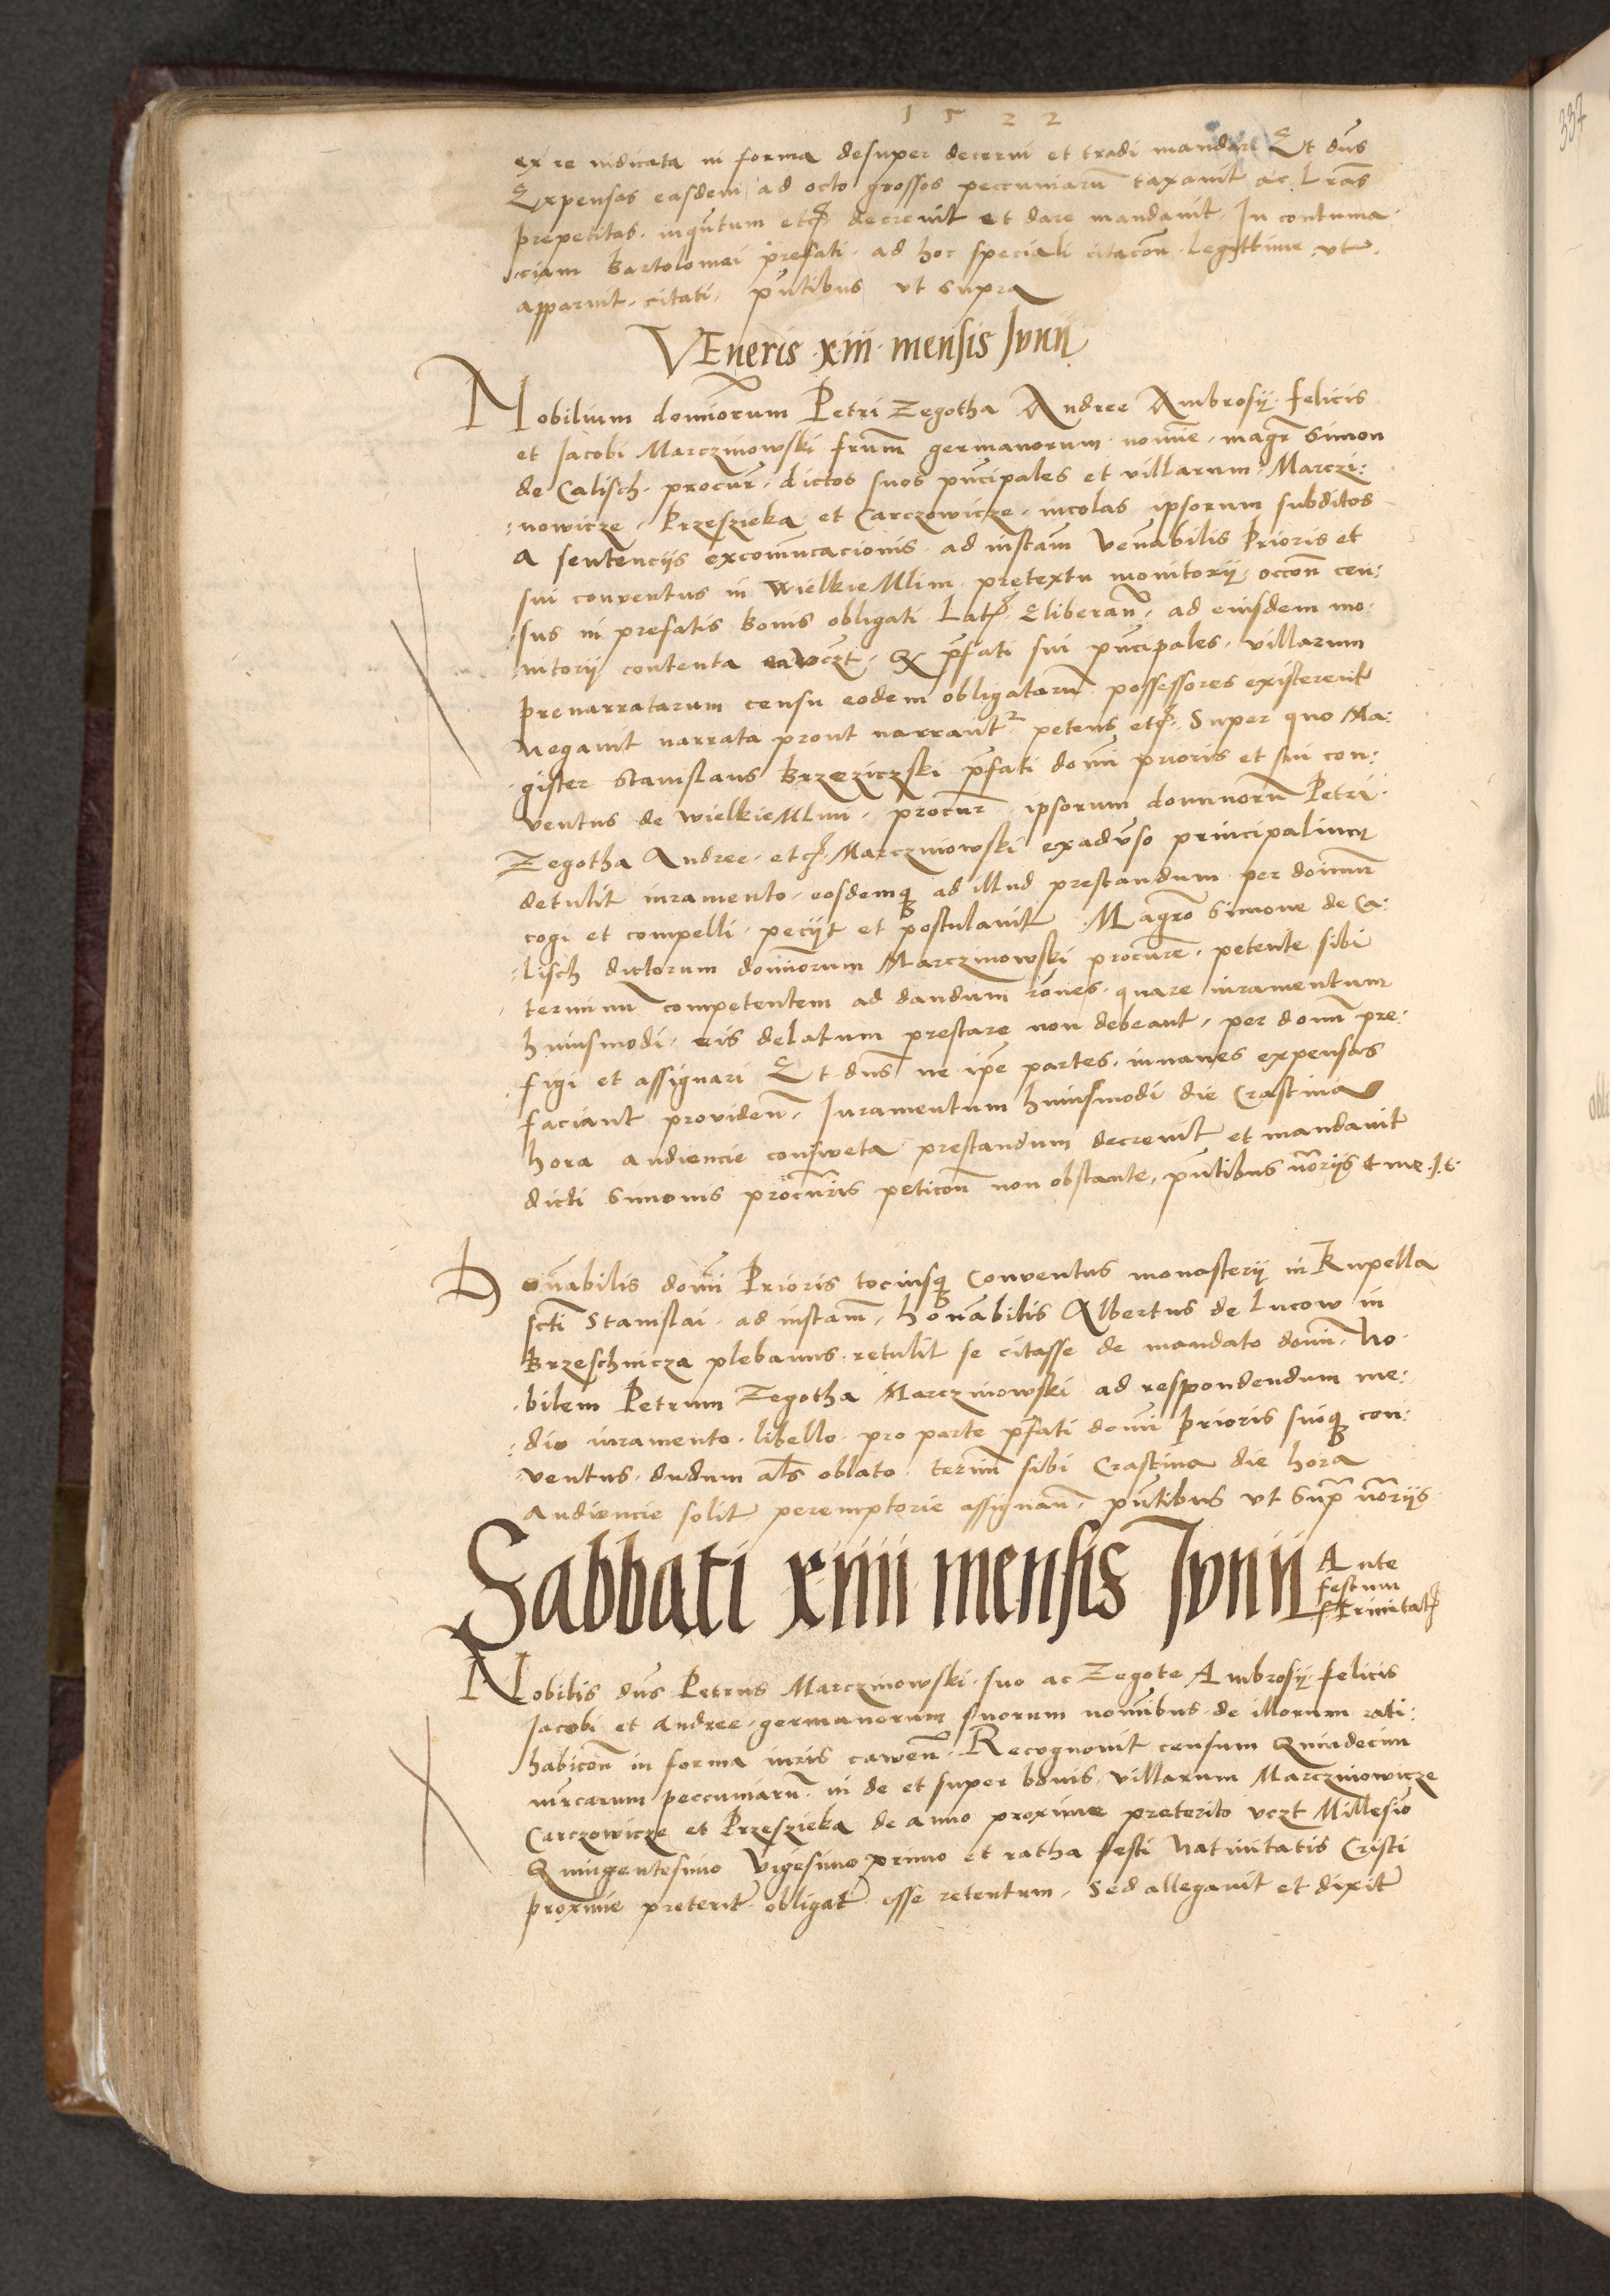 1522
ex re iudicata in forma desuper decerni et tradi mandari Et dns
Expensas easdem ad octo grossos peccuniaru taxavit ac lras
prepetitas inqntum etc decrevit et dare mandavit. In contuma
ciam Bartolomei prefati ad hoc speciali citacon legittime ut
apparuit citati, pntibus ut supra
VEneris xiii mensis Junii
Nobilium domiorum Petri Zegotha Andree Ambrosij felicis
et Jacobi Marczinowski frum germanorum nomine magr Simon
de Calisch procur dictos suos pncipales et villarum Marczi:
:nowicze, Przeszieka et Carczowicze incolas ipsorum subditos
a sentenciis excomunicacionis ad instam venabilis Prioris et
sui conventus in WielkieMlini pretextu monitorij occon cen:
:sus in prefatis bonis obligati lat Eliberan ad eiusdem mo
nitorij contenta pfati sui pncipales villarum
prenarratarum censu eodem obligataru possessores existerent
Negavit narrata prout narrant petens etc Super quo Ma:
gister Stanislaus Brzeziczski pfati domi prioris et sui con:
ventus de WielkieMlini procur ipsorum dominoru Petri
Zegotha Andree etc Marczinowski exadvso principalium
detulit iuramento eosdemq ad illud prestandum per domum
cogi et compelli peciit et postulavit Magro Simone de Ca:
:lisch dictorum domiorum Marczinowski procure petente sibi
terminu competentem ad dandum rones quare iuramentum
huiusmodi eis delatum prestare non debeant, per dom pre:
figi et assignari Et dns ne ipe partes innanes expensas
faciant providen, Iuramentum huiusmodi die Crastina
hora audiencie consweta prestandum decrevit et mandavit
dicti Simonis procuris peticon non obstante, pntibus noriis et me J. t.
venabilis domi Prioris tociusq Conventus monasterij in Rupella
scti Stanislai ad instam, honabilis Albertus de Lucow in
Brzeschnicza plebanus retulit se citasse de mandato domi No
bilem Petrum Zegotha Marczinowski ad respondendum me:
:dio iuramento libello pro parte pfati domi prioris suiq con:
ventus dudum als oblato termi sibi Crastina die hora
audiencie solit peremptorie assignan, pntibus ut supra noriis
Sabbati xiiii mensis Junii Ante
festum
Trinitat
Nobilis dns Petrus Marczinowski suo ac Zegote Ambrosij felicis
Jacobi et Andree germanorum suorum nominibus de illorum rati:
habicon in forma iuris cawen Recognovit censum Quindecim
mrcarum peccuniaru in de et super bonis villarum Marczinowicze
Carczowicze et Przeszieka de anno proxime preterito vczt Millesio
Quingentesimo Vigesimo primo et ratha festi Nativitatis Cristi
proxime preterit obligat esse retentum, Sed allegavit et dixit
337